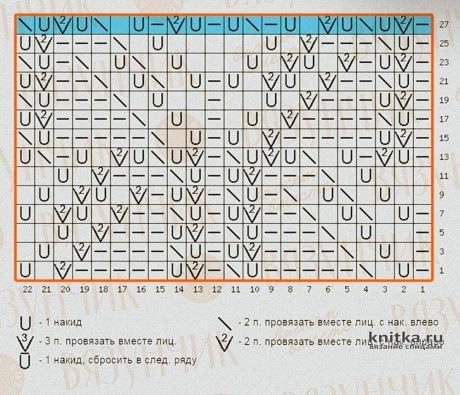 27
25
23
21
19
17
15
13
11
9
7
5
3
1
22 21 20 19 18 17 16 15 14 13 12 11 10 9 8 7 6 5 4 3 2 1
- 1 накид - 2 п. провязать вместе лиц. с нак. влево
3 - 3 п. провязать вместе лиц. 2 - 2 п. провязать вместе лиц.
- 1 накид, сбросить в след. ряду
knitka.ru
вязание спицами
ВЯЗУНЧИК